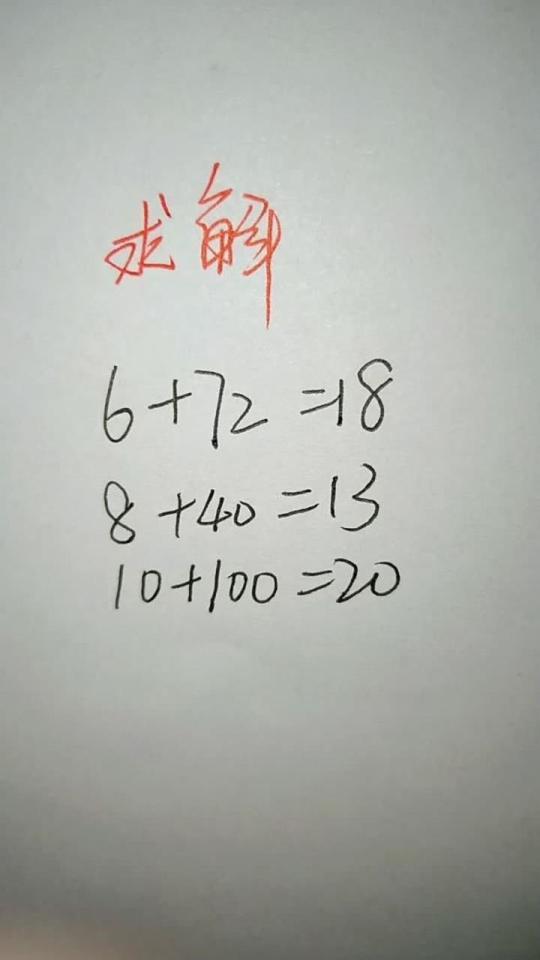 求解
6+72=18
8+40=13
10+100=20